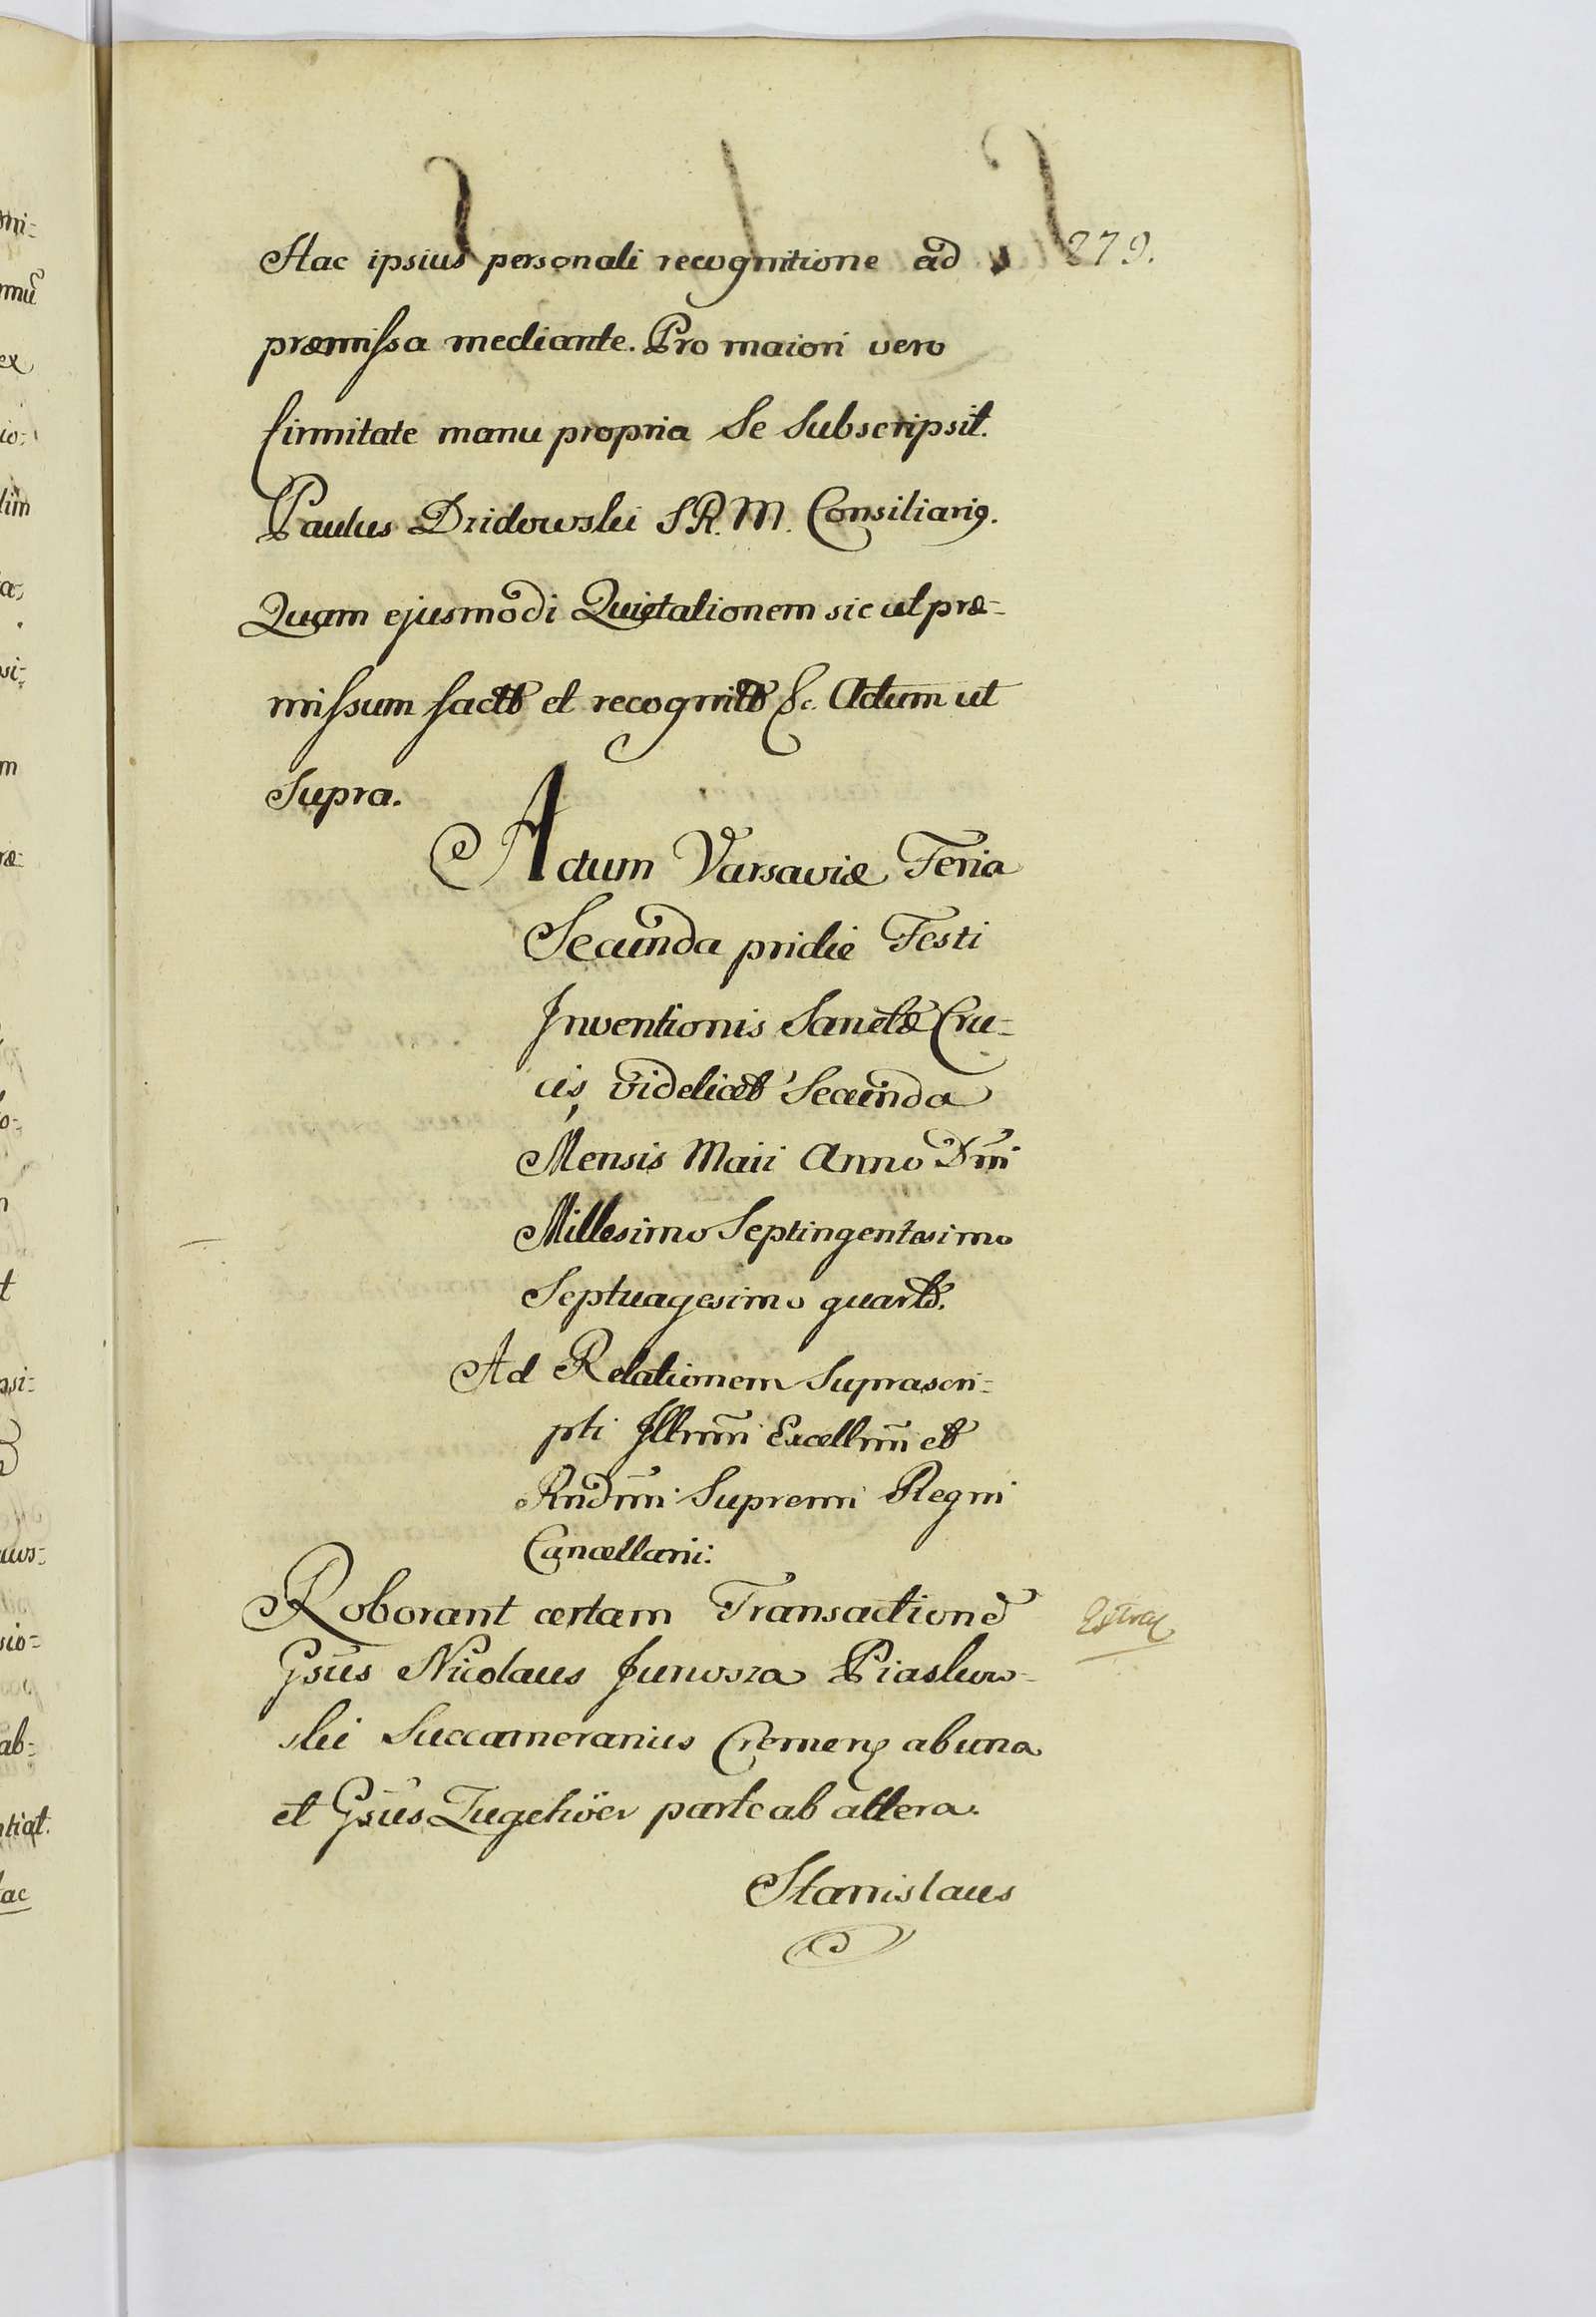 279.
Hac ipsius personali recognitione ad
præmissa mediante. Pro maiori vero
firmitate manu propria Se Subscripsit.
Paulus Dzidowski S R. M. Consiliari9.
Quam ejusmodi Quietationem sic ut præ=
missum facta et recognita &c. Actum ut
Supra.
Actum Varsaviæ Feria
Secunda pridie Festi
Inventionis Sanctæ Cru=
cis, videlicet Secunda
Mensis Maii Anno Dni
Millesimo Septingentesimo
Septuagesimo quarto.
Ad Relationem Suprascri=
pti Illrmi Excellmi et
Rndmi Supremi Regni
Cancellarii:
Roborant certam Transactione
Gsus Nicolaus Junosza Piaskow=
ski Succamerarius Cremen ab una
et Gsus Zugehöer parte ab altera.
Stanislaus
mi=
mū
ex
io=
lim
a,
si=
m
ræ=
o=
t
si=
uws=
sio=
ab=
ntiat.
ac